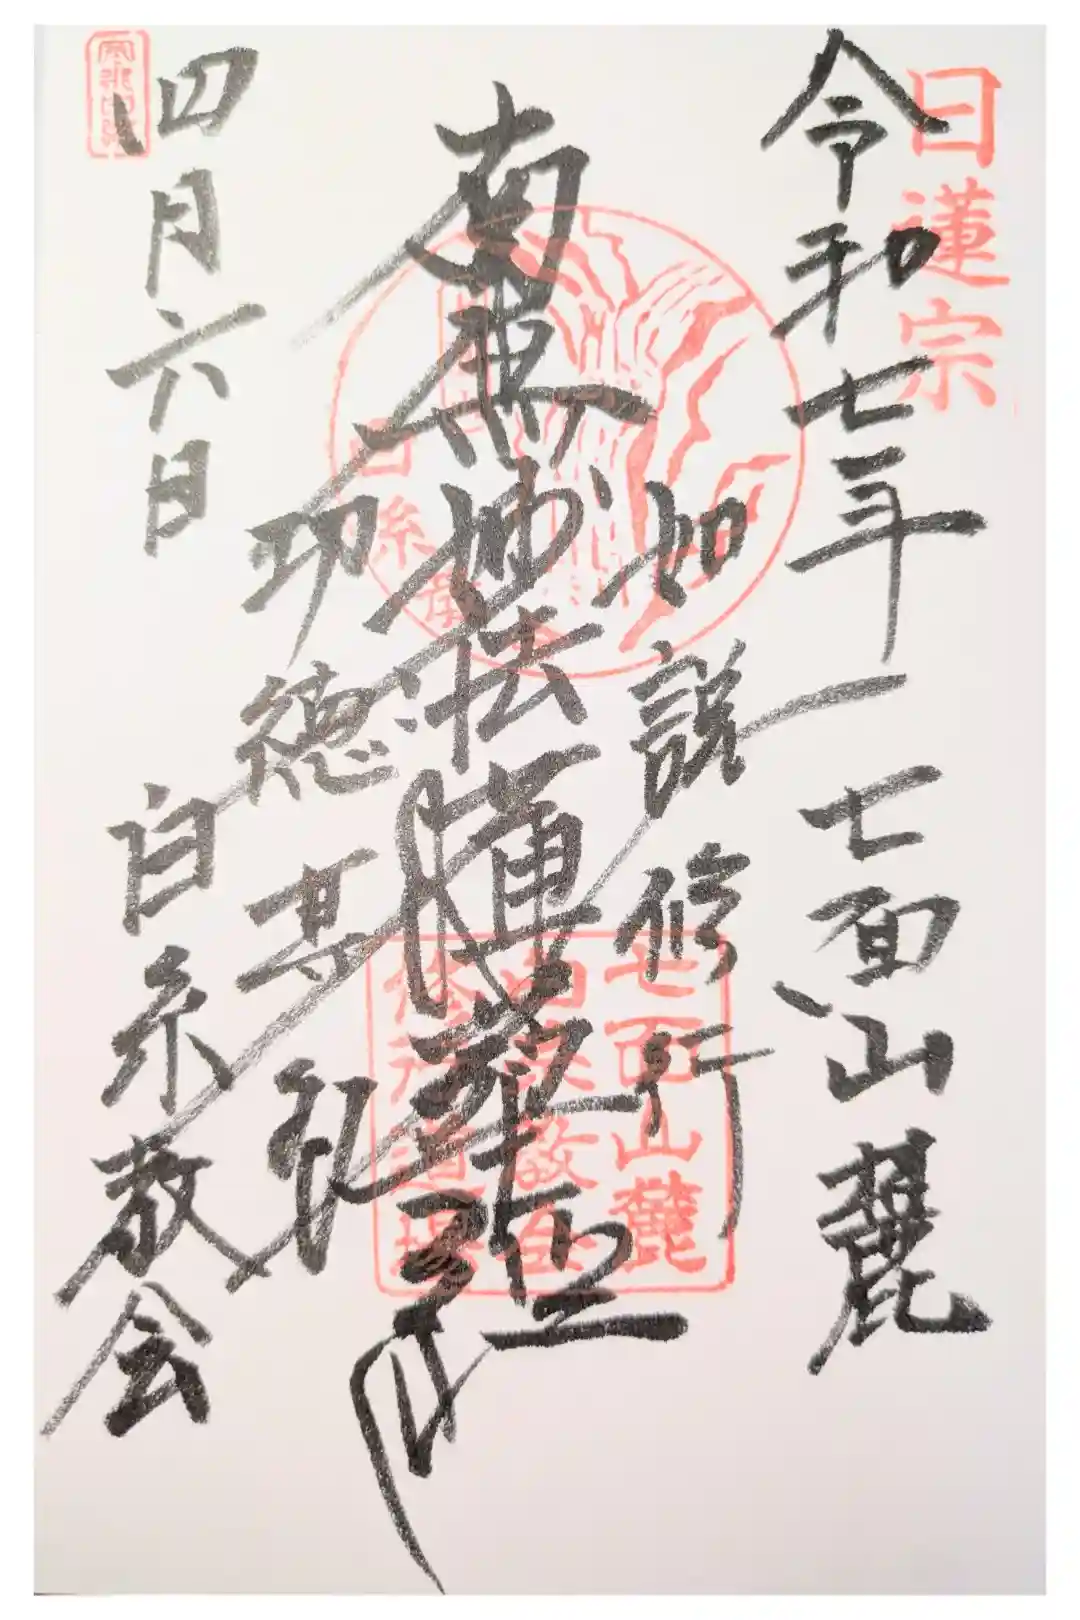 日蓮宗
令和七年
七面山麓
如説修行
南無妙法蓮華経
功徳甚
四月六日
白糸教会
白糸
七面山麓
白糸教会
修行道場